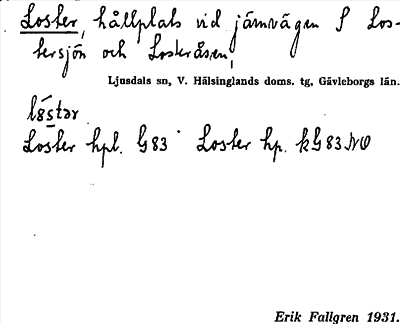 Loster, hållplats vid järnvägen S Los-
tersjön och Losteråsen,
Ljusdals sn, V. Hälsinglands doms. tg, Gävleborgs län.
lo̱stər
Loster hpl. G83 Loster hp. kG83NO
Erik Fallgren 1931.